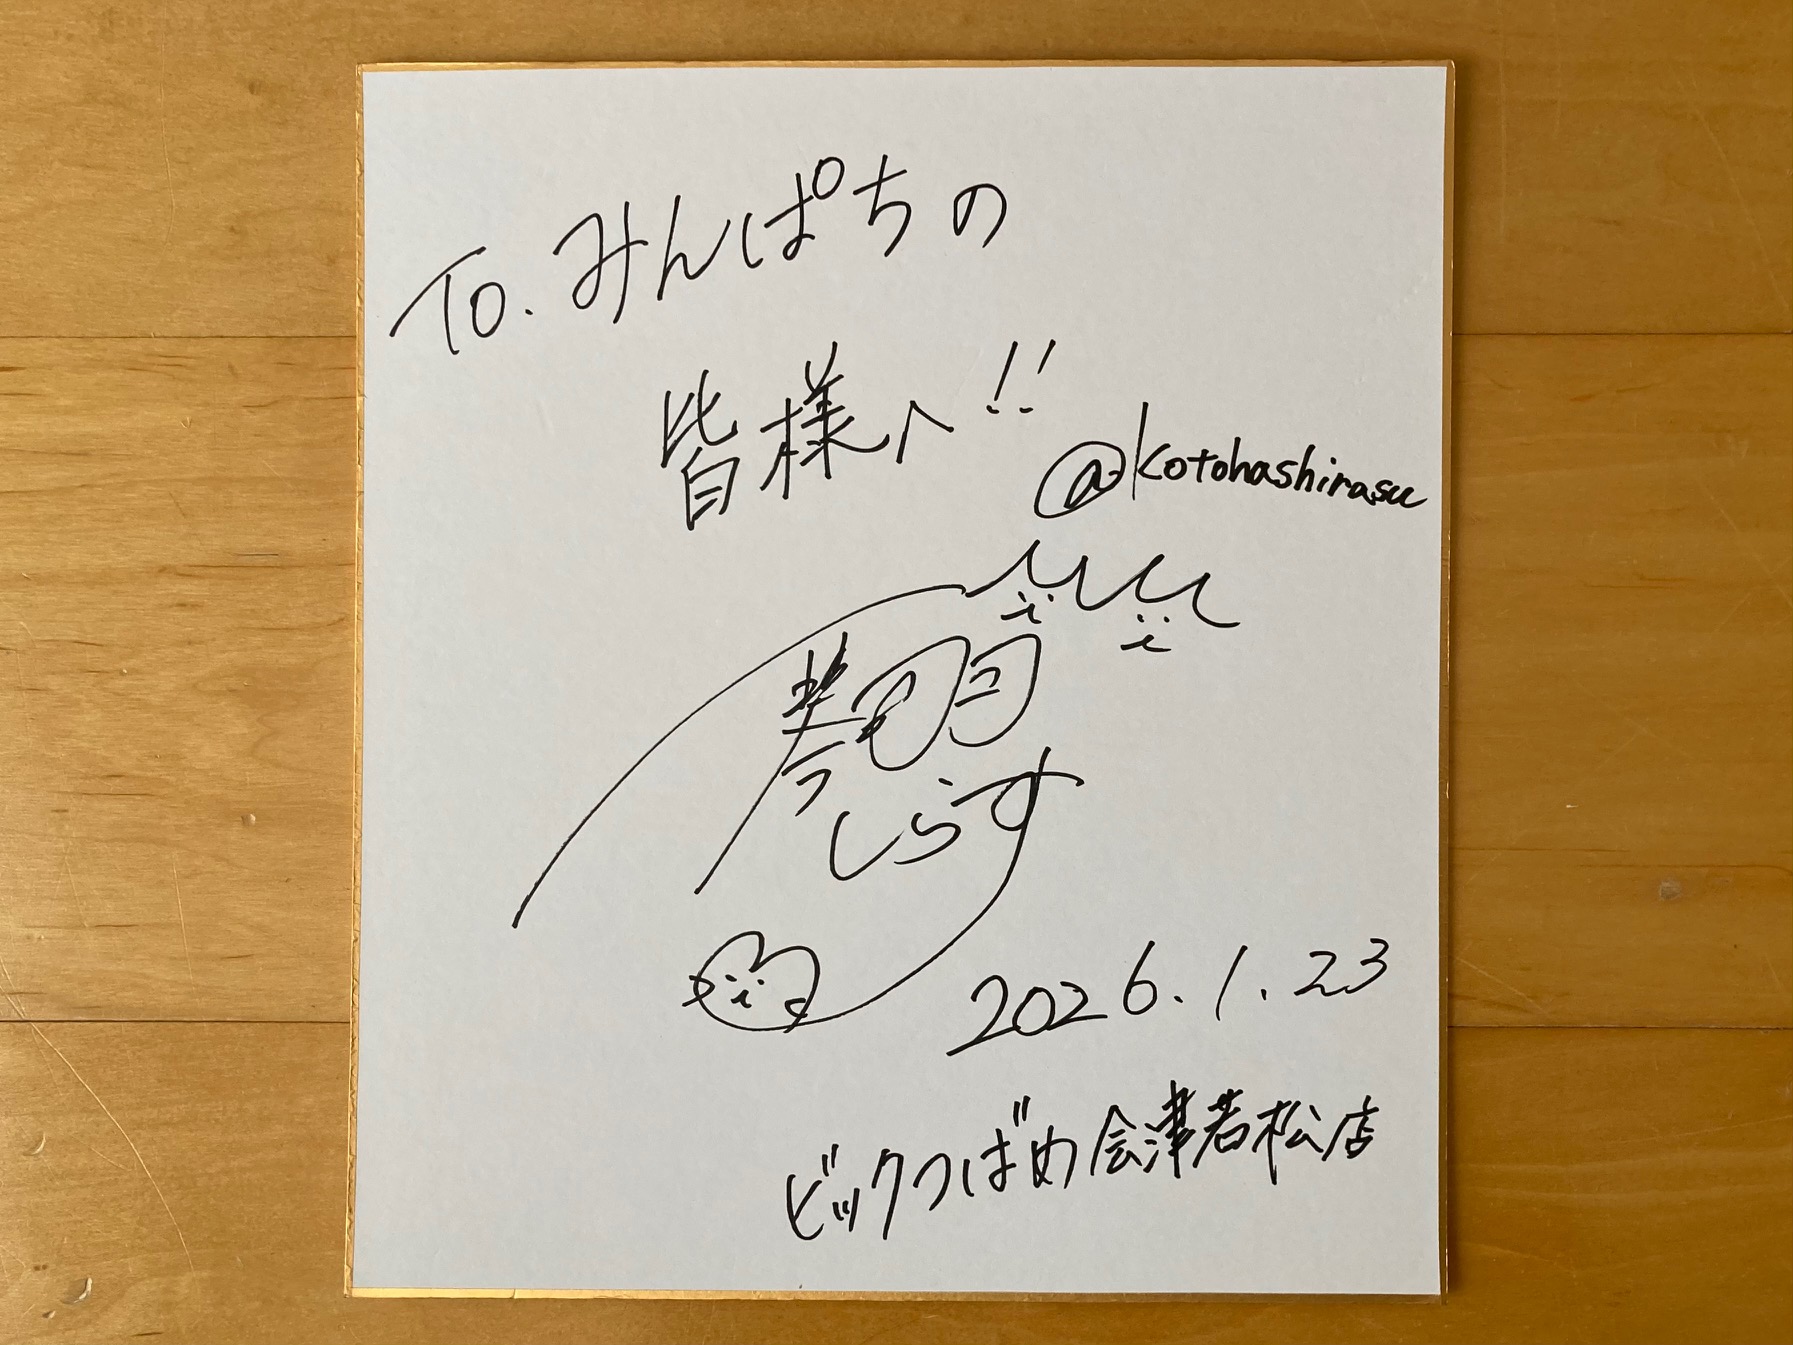 To.みんぱちの
皆様へ!!
@kotohashirasu
琴羽
しらす
2026.1.23
ビックつばめ会津若松店